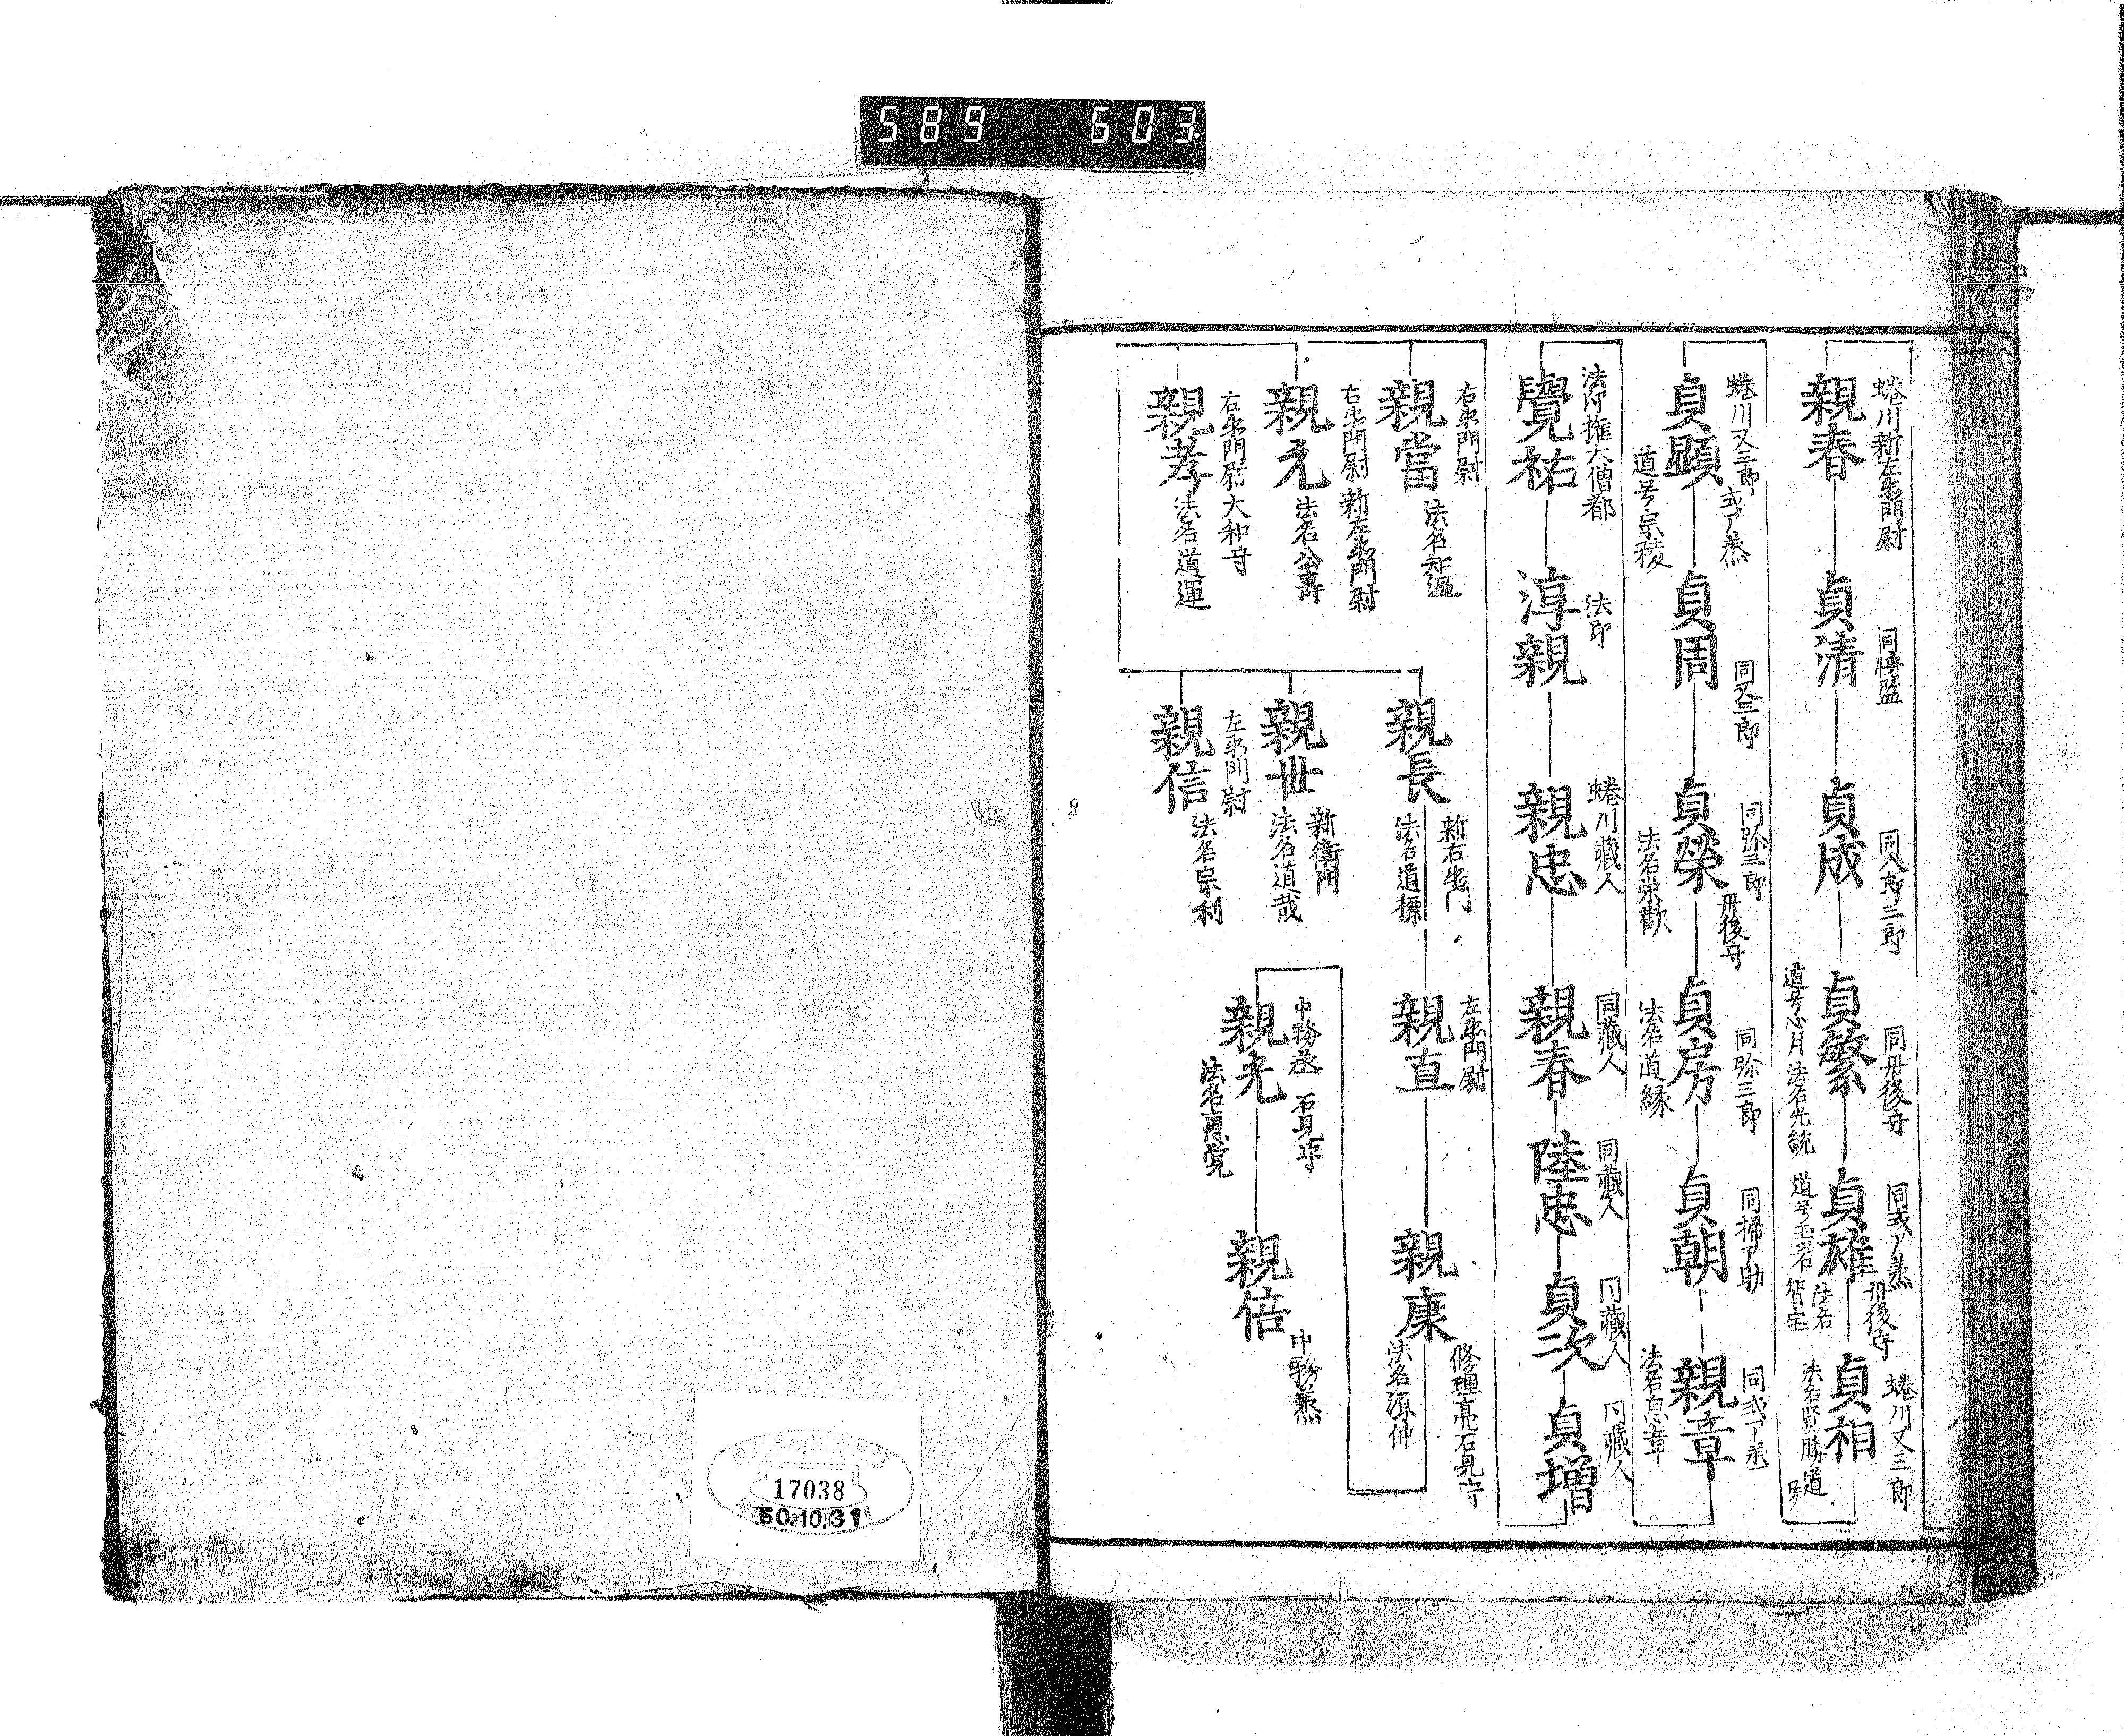 589 603
蜷川新左衛門尉
親春
同将監
貞清
同八郎三郎
貞成
同丹後守
貞繁
道号心月 法名光統
同式ア丞 丹後守
貞雄
道号玉岩 法名
蜷川又三郎
貞相
法名賢勝道
蜷川又三郎 式ア丞
貞顕
道号宗稜
同又三郎
貞周
同弥三郎 丹後守
貞榮
法名栄歡
同弥三郎
貞房
法名道縁
同掃ア助
貞朝
同式ア丞
親章
法印権大僧都
覺祐
法印
淳親
蜷川藏人
親忠
同藏人
親春
同藏人
陸忠
同藏人
貞次
同藏人
貞増
右衛門尉
親當
法名知温
右衛門尉 新左衛門尉
親元
法名公壽
右衛門尉 大和守
親孝
法名道運
新右衛門
親長
法名道標
新衛門
親世
法名道哉
左衛門尉
親信
法名宗利
左衛門尉
親直
修理亮石見守
親康
法名源仲
中務丞 石見守
親光
中務丞
親倍
17038
50.10.31